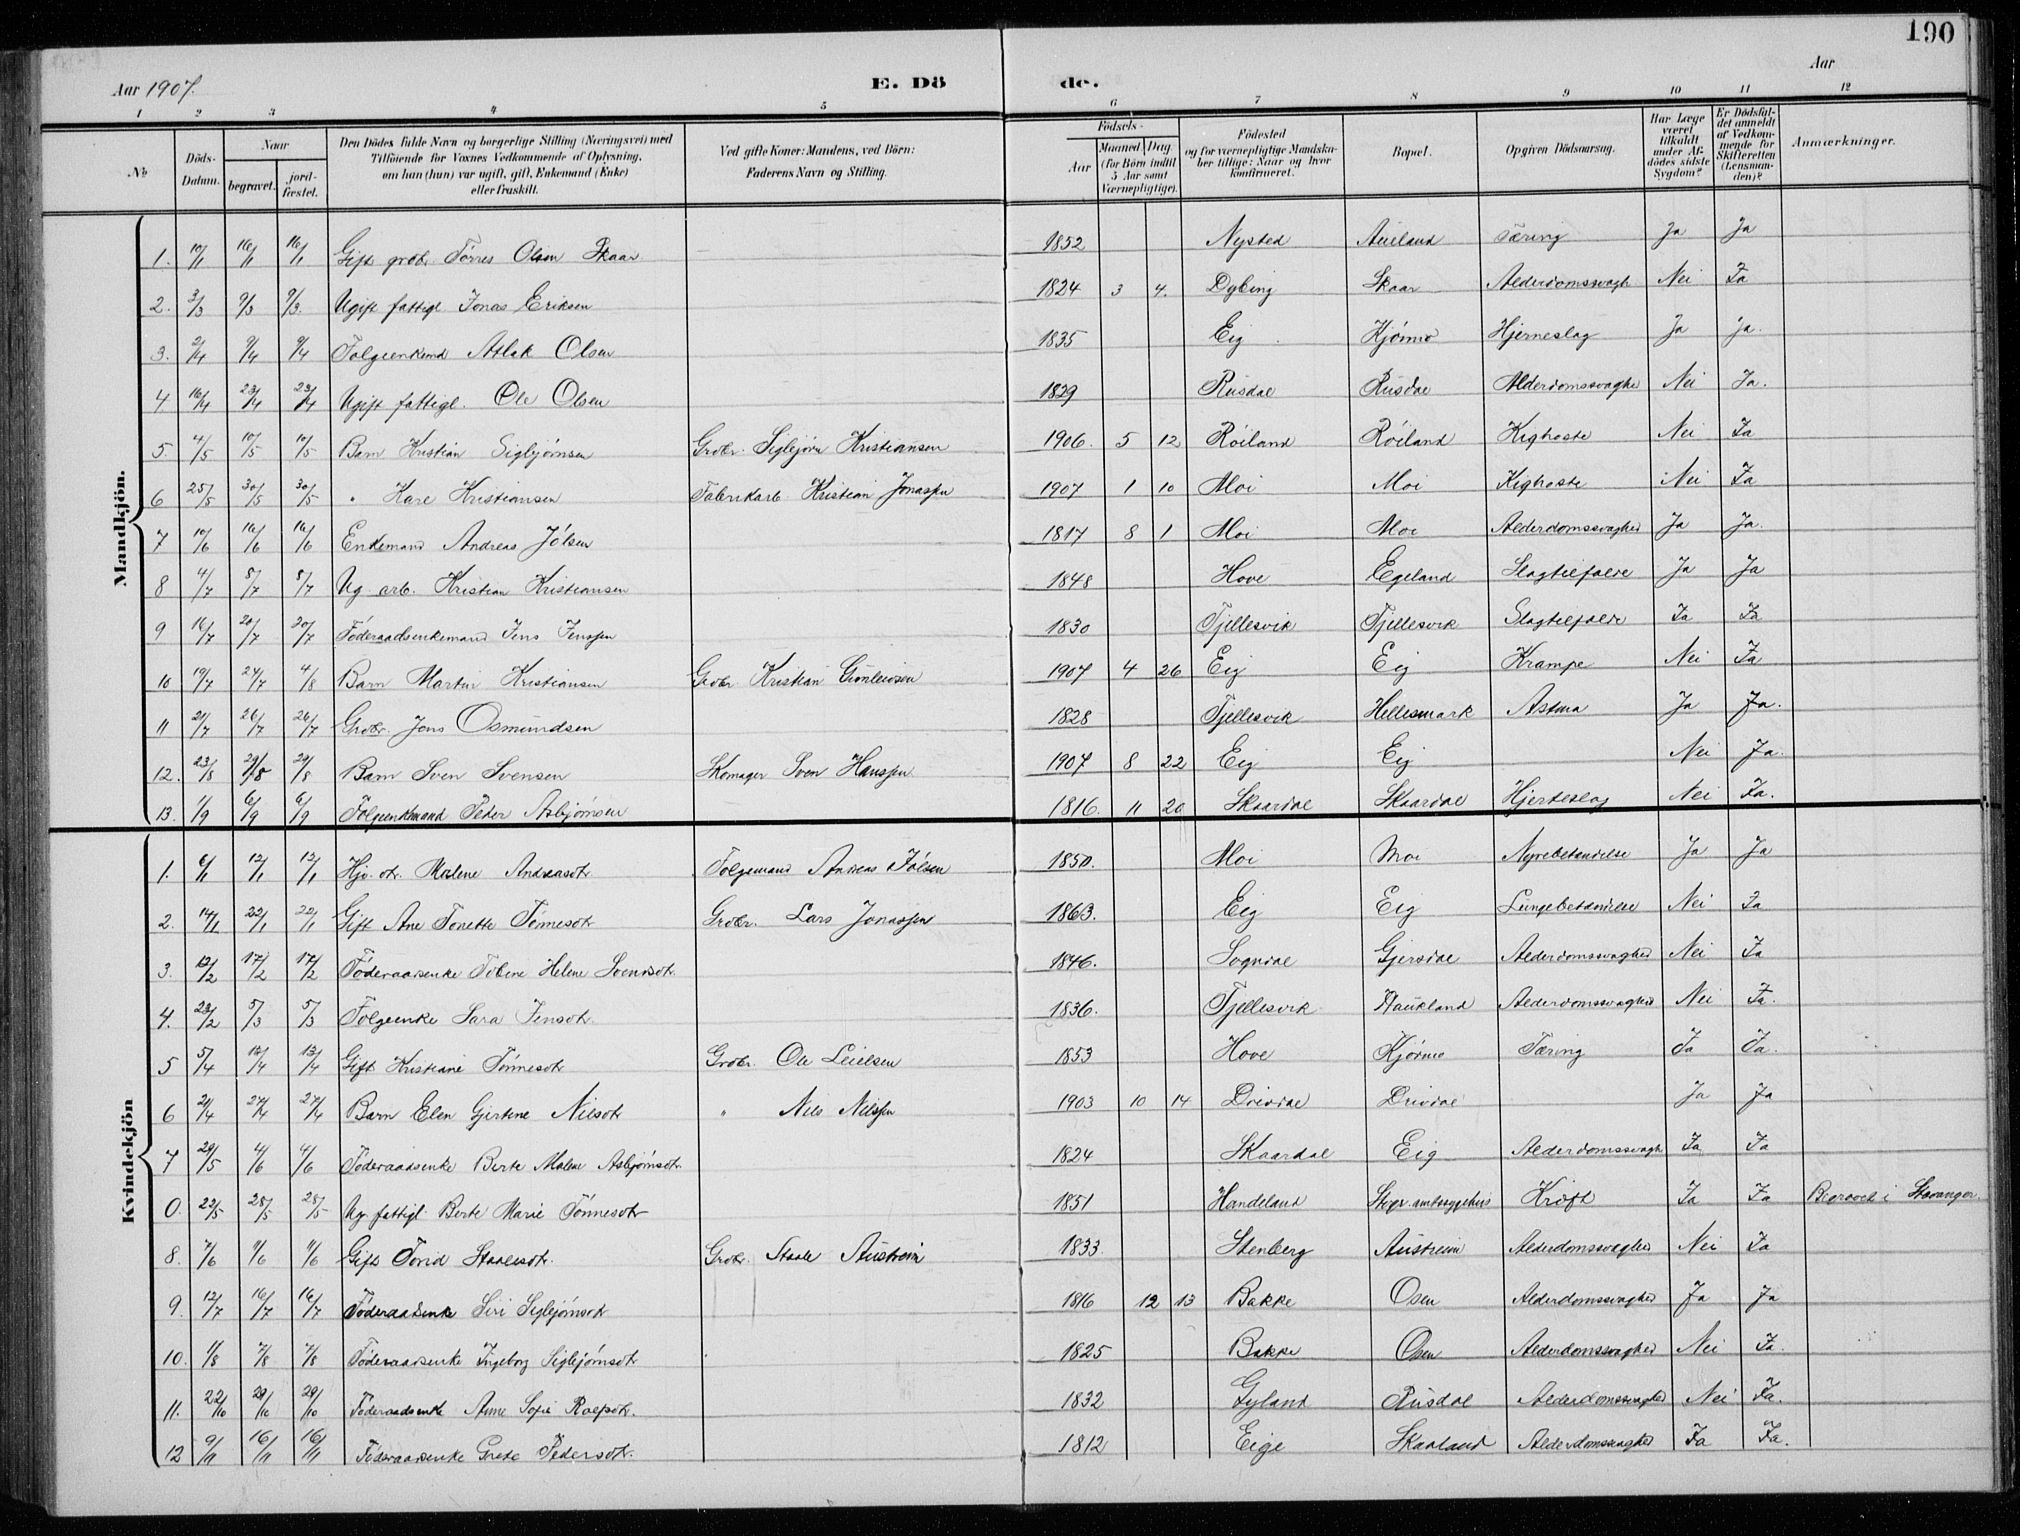 190
Aar 1907. E. Dö de. Aar
1 2 3 4 5 6 7 8 9 10 11 12
No
Döds-Datum.
Naar
begravet.
jord-fæstet.
Den Dödes fulde Navn og borgerlige Stilling (Næringsvei) med
Tilföiende for Voxnes Vedkommende af Oplysning,
om han (hun) var ugift, gift, Enkemand (Enke)
eller fraskilt.
Ved gifte Koner: Mandens, ved Börn:
Faderens Navn og Stilling.
Födsels-
Aar
Maaned Dag
(for Börn indtil
5 Aar samt
Værnepligtige).
Födested
og for værnepligtige Mandska-
ber tillige: Naar og hvor
konfirmeret.
Bopæl.
Opgiven Dödsaarsag.
Har Læge
været
tilkaldt
under Af-
dödes sidste
Sygdom?
Er Dödsfal-
det anmeldt
af Vedkom-
mende for
Skifteretten
(Lensman-
den)?
Anmærkninger.
Mandkjön.
1. 10/1 16/1 16/1 Gift grdbr. Tørres Olsen Skaar 1852 Nysted Aueland Tæring Ja Ja
2. 3/3 9/3 9/3. Ugift fattigl Jonas Eriksen 1824 3 4. Dybing Skaar Alderdomssvagh Nei Ja
3. 2/4 9/4 9/4 Folgeenkemd Atlak Olsen 1835 Eig Kjørmo Hjerneslag Ja ja.
4 16/4 23/4 23/4 Ugift fattigl. Ole Olsen 1829 Rusdal Rusdal Alderdomssvaghed Nei Ja.
5. 4/5 10/5 10/5 Barn Kristian Sigbjørnsen Grdbr. Sigbjørn Kristiansen 1906. 5 12 Røiland Røiland Kighoste Nei Ja
6 25/5 30/5 30/5 " Kare Kristiansen Fabrikarb. Kristian Jonassen 1907 1 10 Moi Moi Kighoste Nei Ja
7 10/6 16/6 16/6 Enkemand Andreas Jølsen 1817 8 1 Moi Moi Alderdomssvaghed Ja Ja.
8 4/7 8/7 8/7 Ug. arb. Kristian Kristiansen 1848 Hove Egeland Slagtilfælde Ja Ja
9 16/7 20/7 20/7 Føderaadsenkemand Jens Jenssen 1830 Fjellesvik Fjellesvik Slagtilfælde Ja Ja
10 19/7 24/7 4/8 Barn Martin Kristiansen Grdbr. Kristian Gunleivsen 1907 4 26 Eig Eig Krampe Nei Ja
11 21/7 26/7 26/7 Grdbr. Jens Osmundsen 1828 Fjellesvik Hellesmark Astma Ja Ja.
12. 23/8 29/8 29/8 Barn Sven Svensen Skomager Sven Hanssen 1907 8 22 Eig Eig Nei Ja.
13. 1/9 6/9 6/9 Følgeenkemand Peder Asbjørnsen 1816. 11 20 Skaardal Skaardal Hjerteslag Nei Ja.
Kvindekjön
1. 6/1 12/1 12/1 Hjv. dr. Malene Andreasdtr Folgemand Andreas Jølsen 1850. Moi Moi Nyrebetændelse Ja Ja
2. 14/1 22/1 22/1 Gift Ane Tonette Tønnesdtr Grdbr. Lars Jonassen 1863. Eig Eig Lungebetændelse Nei Ja
3. 12/2 17/2 17/2 Føderaadsenke Tobine Helene Svendsdtr. 1846. Sogndal Gjersdal Alderdomssvaghed Nei Ja
4. 23/2 5/3 5/3 Folgeenke Sara Jensdtr. 1836. Fjellesvik Haukland Alderdomssvaghed Nei Ja.
5 5/4 12/4 12/4 Gift Kristiane Tønnesdtr Grdbr. Ole Leielsen 1853 Hove Kjørmo Tæring Ja Ja.
6 21/4 27/4 27/4 Barn Elen Gjertine Nilsdtr " Nils Nilssen 1903 10 14 Drivdal Drivdal Ja Ja
7 29/5 4/6 4/6 Føderaadsenke Berte Malene Asbjørnsdtr. 1824 Skaardal Eig Alderdomssvagh Ja Ja
0. 22/5 28/5 28/5 Ug fattigl. Berte Marie Tønnesdtr 1851 Handeland Stvgr. amtssygehus Kræft Ja Ja Begravet i Stavanger.
8. 7/6 11/6 11/6 Gift Torid Staalesdtr. Grdbr. Staale Austreim 1833 Stenberg Austreim Alderdomssvaghed Nei Ja
9. 12/7 16/7 16/7 Føderaadsenke Siri Sigbjørnsdtr 1816 12 13 Bakke Osen Alderdomssvaghed Ja Ja
10. 1/8 7/8 7/8 Føderaadsenke Ingeborg Sigbjørnsdtr 1825 Bakke Osen Alderdomssvaghed Nei Ja.
11. 22/10 29/10 29/10 Føderaadsenke Anne Sofie Roefsdtr. 1832 Gyland Rusdal Alderdomssvaghed Nei Ja.
12 9/11 16/11 16/11 Føderaadsenke Grete Pedersdtr. 1812 Eige Skaaland Alderdomssvaghed Ja Ja.